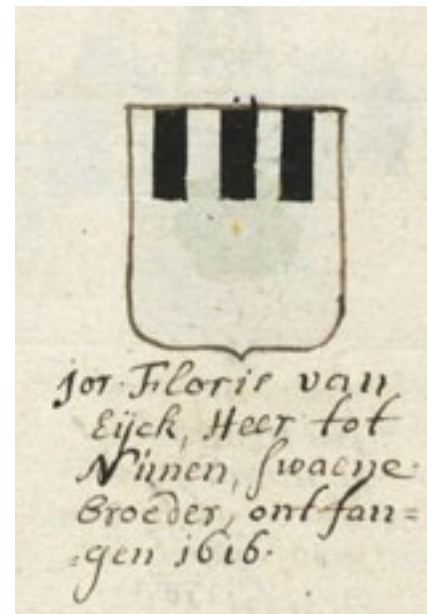 jor. Floris van
Eijck, Heer tot
Nunen, swaene
broeder, ontfan=
=gen 1616.